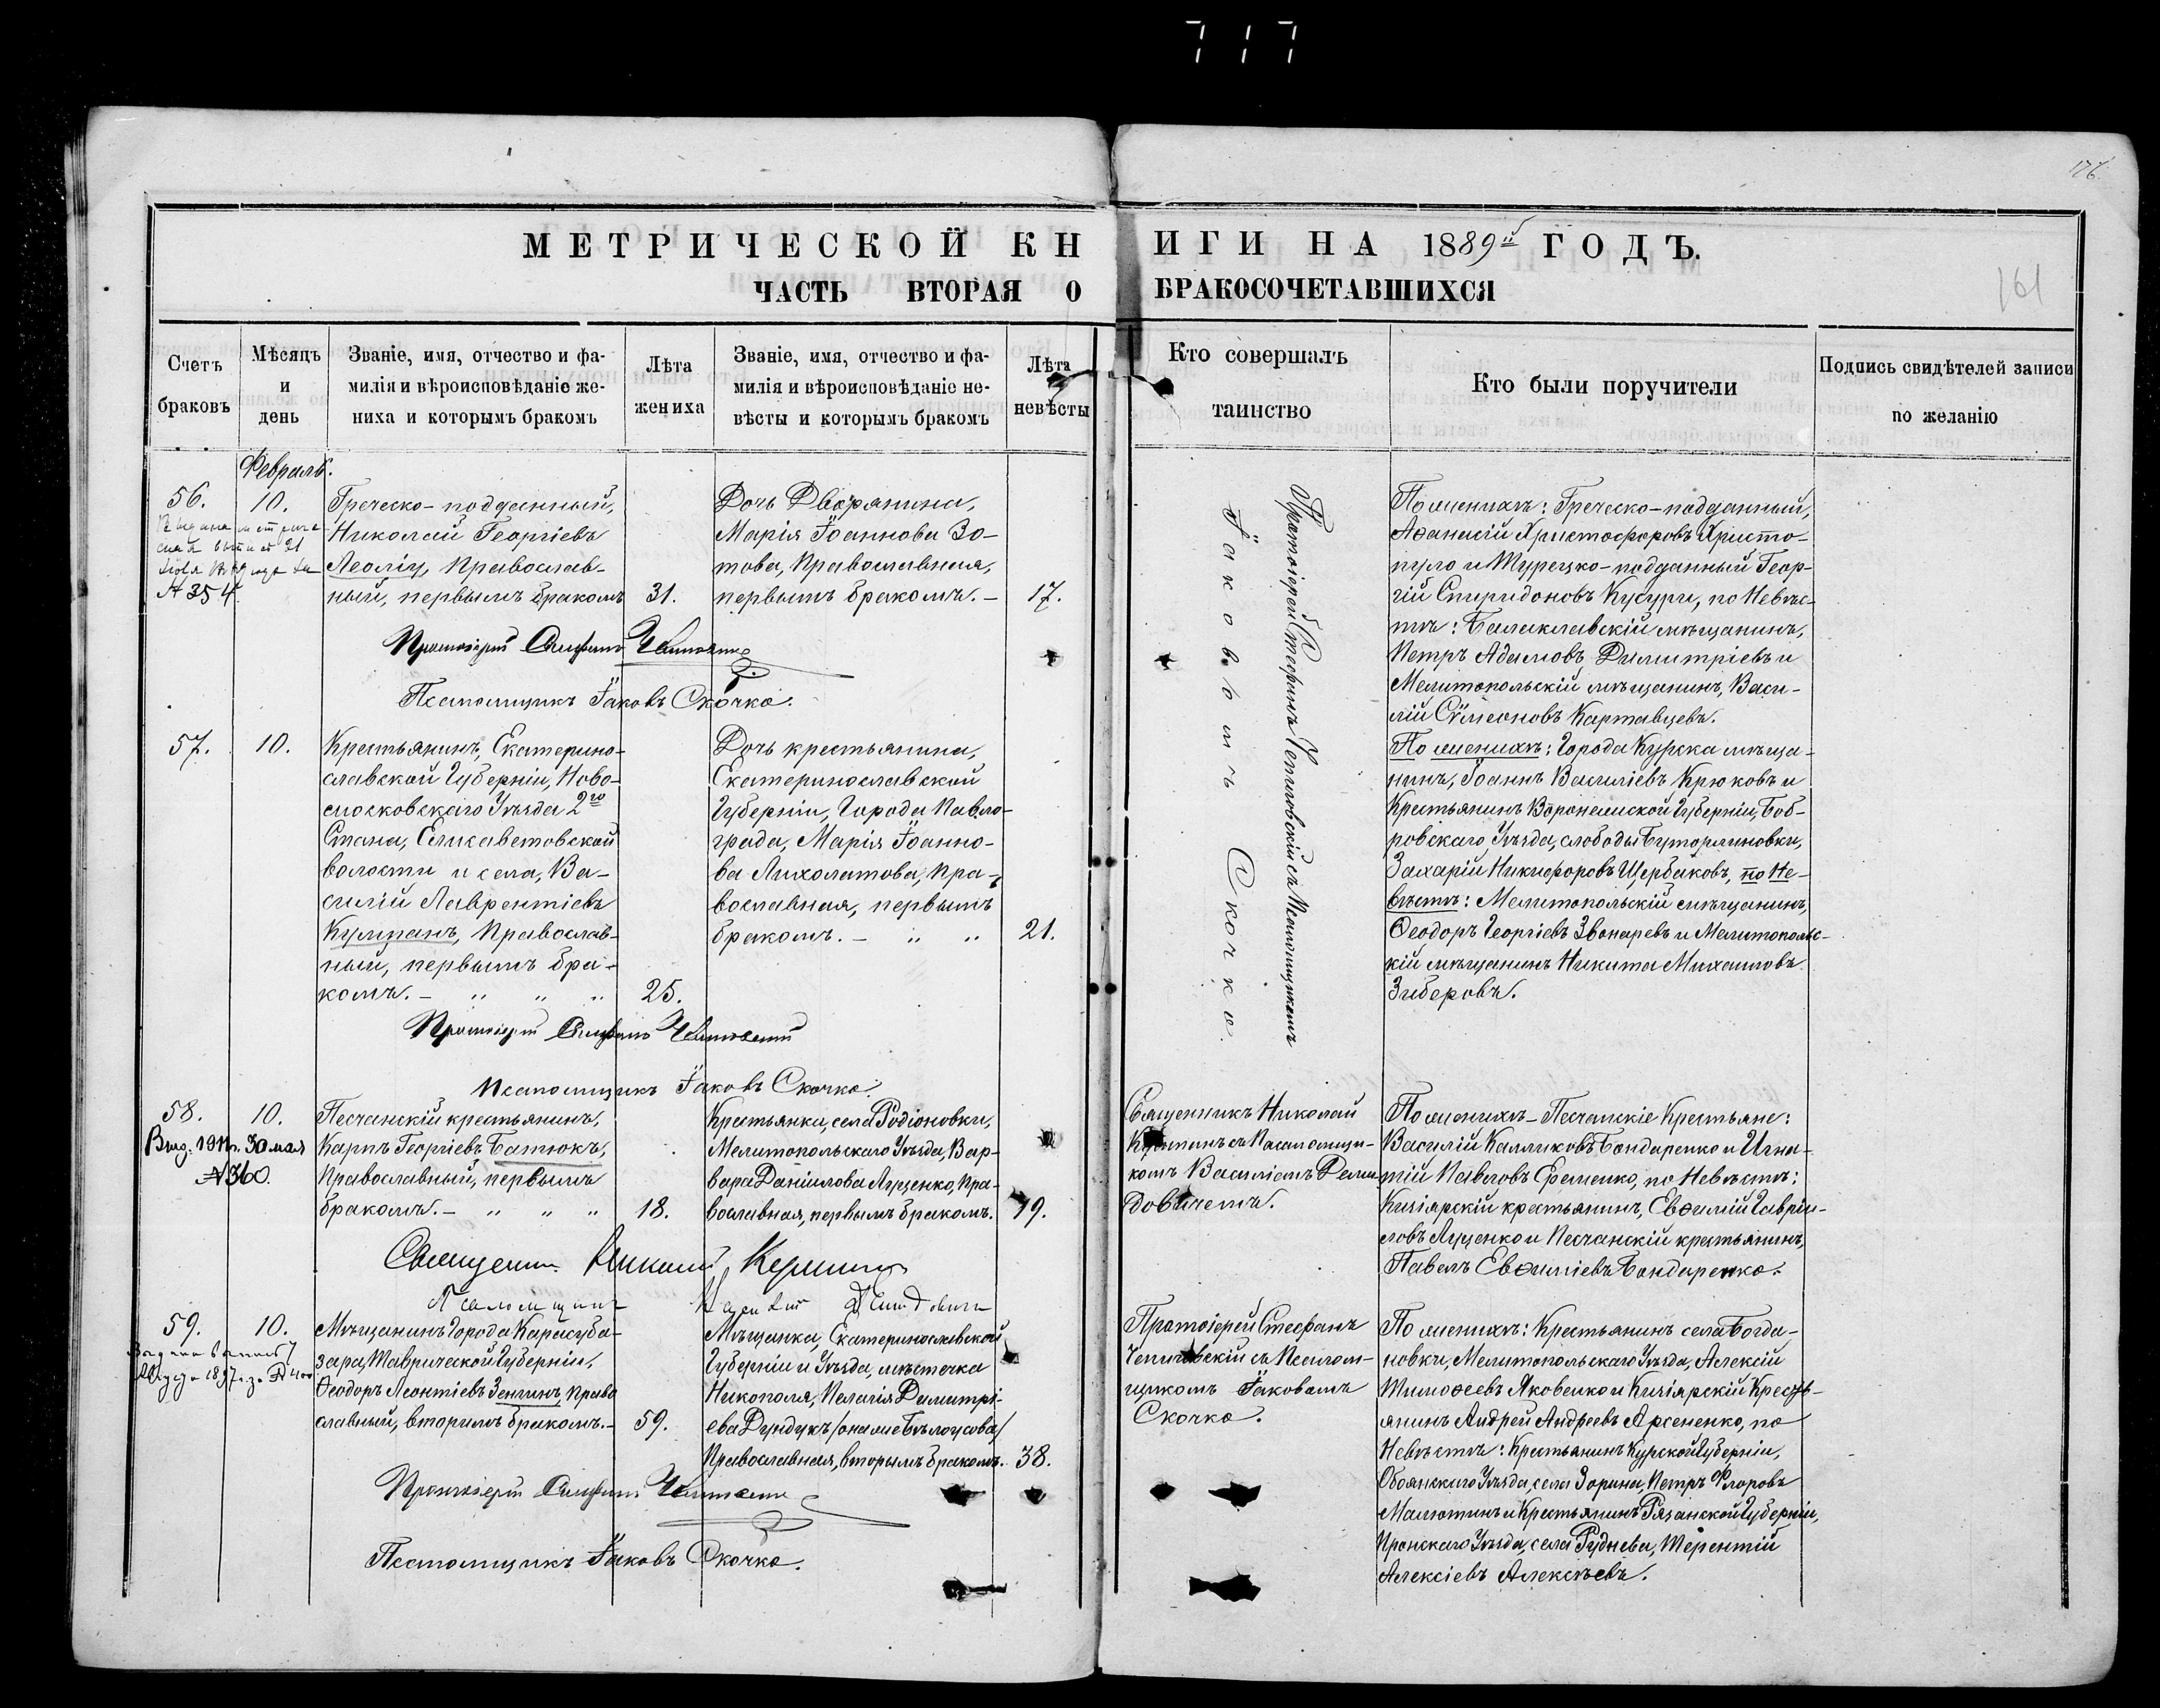 717
176
161
МЕТРИЧЕСКОЙ КНИГИ НА 1889й ГОДЪ.
ЧАСТЬ ВТОРАЯ О БРАКОСОЧЕТАВШИХСЯ
Счетъ
браковъ
Мѣсяцъ
и
день
Званіе, имя, отчество и фа-
милія и вѣроисповѣданіе же-
ниха и которымъ бракомъ
Лѣта
жениха
Званіе, имя, отчество и фа-
милія и вѣроисповѣданіе не-
вѣсты и которымъ бракомъ
Лѣта
невѣсты
Кто совершалъ
таинство
Кто были поручители
Подпись свидѣтелей записи
по желанію
Февраль.
56.
№ 354.
10.
Греческо-подданный,
Николай Георгіевъ
Леоліу, Православ-
ный, первымъ бракомъ
31.
Дочь Дворянина,
Марія Іоаннова Зо-
това, Православная,
первымъ бракомъ. —
17.
Протоіерей Стефанъ
Псаломщикъ Іаковъ Скочко.
Протоіерей Стефанъ Чепиговскій съ Псаломщикомъ
Іаковомъ Скочко.
По женихѣ: Греческо-подданный,
Аѳанасій Христофоровъ Христо-
пуло и Турецко-подданный Геор-
гій Спиридоновъ Кусури, по Невѣс-
тѣ: Балаклавскій мѣщанинъ,
Петръ Адамовъ Димитріевъ и
Мелитопольскій мѣщанинъ, Васи-
лій Сѵмеоновъ Картавцевъ.
57.
10.
Крестьянинъ, Екатерино-
славской Губерніи, Ново-
московскаго Уѣзда 2го
Стана, Елисаветовской
волости и села, Ва-
силій Лаврентіевъ
Кулпанъ, Православ-
ный, первымъ бра-
комъ. — „ „ „
25.
Дочь крестьянина,
Екатеринославской
Губерніи, Города Павло-
града, Марія Іоанно-
ва Лихолатова, Пра-
вославная, первымъ
бракомъ. — „ „
21.
Протоіерей Стефанъ
Псаломщикъ Іаковъ Скочко.
По женихѣ: Города Курска мѣща-
нинъ, Іоаннъ Василіевъ Крюковъ и
Крестьянинъ Воронежской Губерніи, Боб-
ровскаго Уѣзда, слободы Бутурлиновки,
Захарій Никифоровъ Щербаковъ, по Не-
вѣстѣ: Мелитопольскій мѣщанинъ,
Ѳеодоръ Георгіевъ Звонаревъ и Мелитопольс-
кій мѣщанинъ Никита Михаиловъ
Зиберовъ.
58.
Выд. 1911г. 30 мая
№ 360.
10.
Песчанскій крестьянинъ,
Карпъ Георгіевъ Батюкъ,
Православный, первымъ
бракомъ. — „ „ „
18.
Крестьянка, села Родіоновки,
Мелитопольскаго Уѣзда, Вар-
вара Даніилова Луценко, Пра-
вославная, первымъ бракомъ.
19.
Священникъ Николай
Псаломщикъ
Священникъ Николай
съ Псаломщи-
комъ Василіемъ
По женихѣ — Песчанскіе Крестьяне:
Василій Калликовъ Бондаренко и Игна-
тій Павловъ Еременко, по Невѣстѣ:
Кизіярскій крестьянинъ, Евѳимій Гаврiи-
ловъ Луценко и Песчанскій крестьянинъ,
Павелъ Евѳиміевъ Бондаренко.
59.
10.
Мѣщанинъ Города Карасуба-
зара, Таврической Губерніи,
Ѳеодоръ Леонтіевъ Зенгинъ, Право
славный, вторымъ бракомъ. —
59.
Мѣщанка, Екатеринославской
Губерніи и Уѣзда, мѣстечка
Никополя, Пелагія Димитрі-
ева Дундукъ /она же Бѣлоусова/
Православная, вторымъ бракомъ.
38.
Протоіерей Стефанъ
Псаломщикъ Іаковъ Скочко.
Протоіерей Стефанъ
Чепиговскій съ Псалом-
щикомъ Іаковомъ
Скочко.
По женихѣ: Крестьянинъ села Богда-
новки, Мелитопольскаго Уѣзда, Алексій
Тимоѳеевъ Яковенко и Кизіярскій Кресть-
янинъ Андрей Андреевъ Арсененко, по
Невѣстѣ: Крестьянинъ Курской Губерніи,
Обоянскаго Уѣзда, села Зорина, Петръ Флоровъ
Малютинъ и Крестьянинъ Рязанской Губерніи,
Пронскаго Уѣзда, села Руднева, Терентій
Алексіевъ Алексѣевъ.